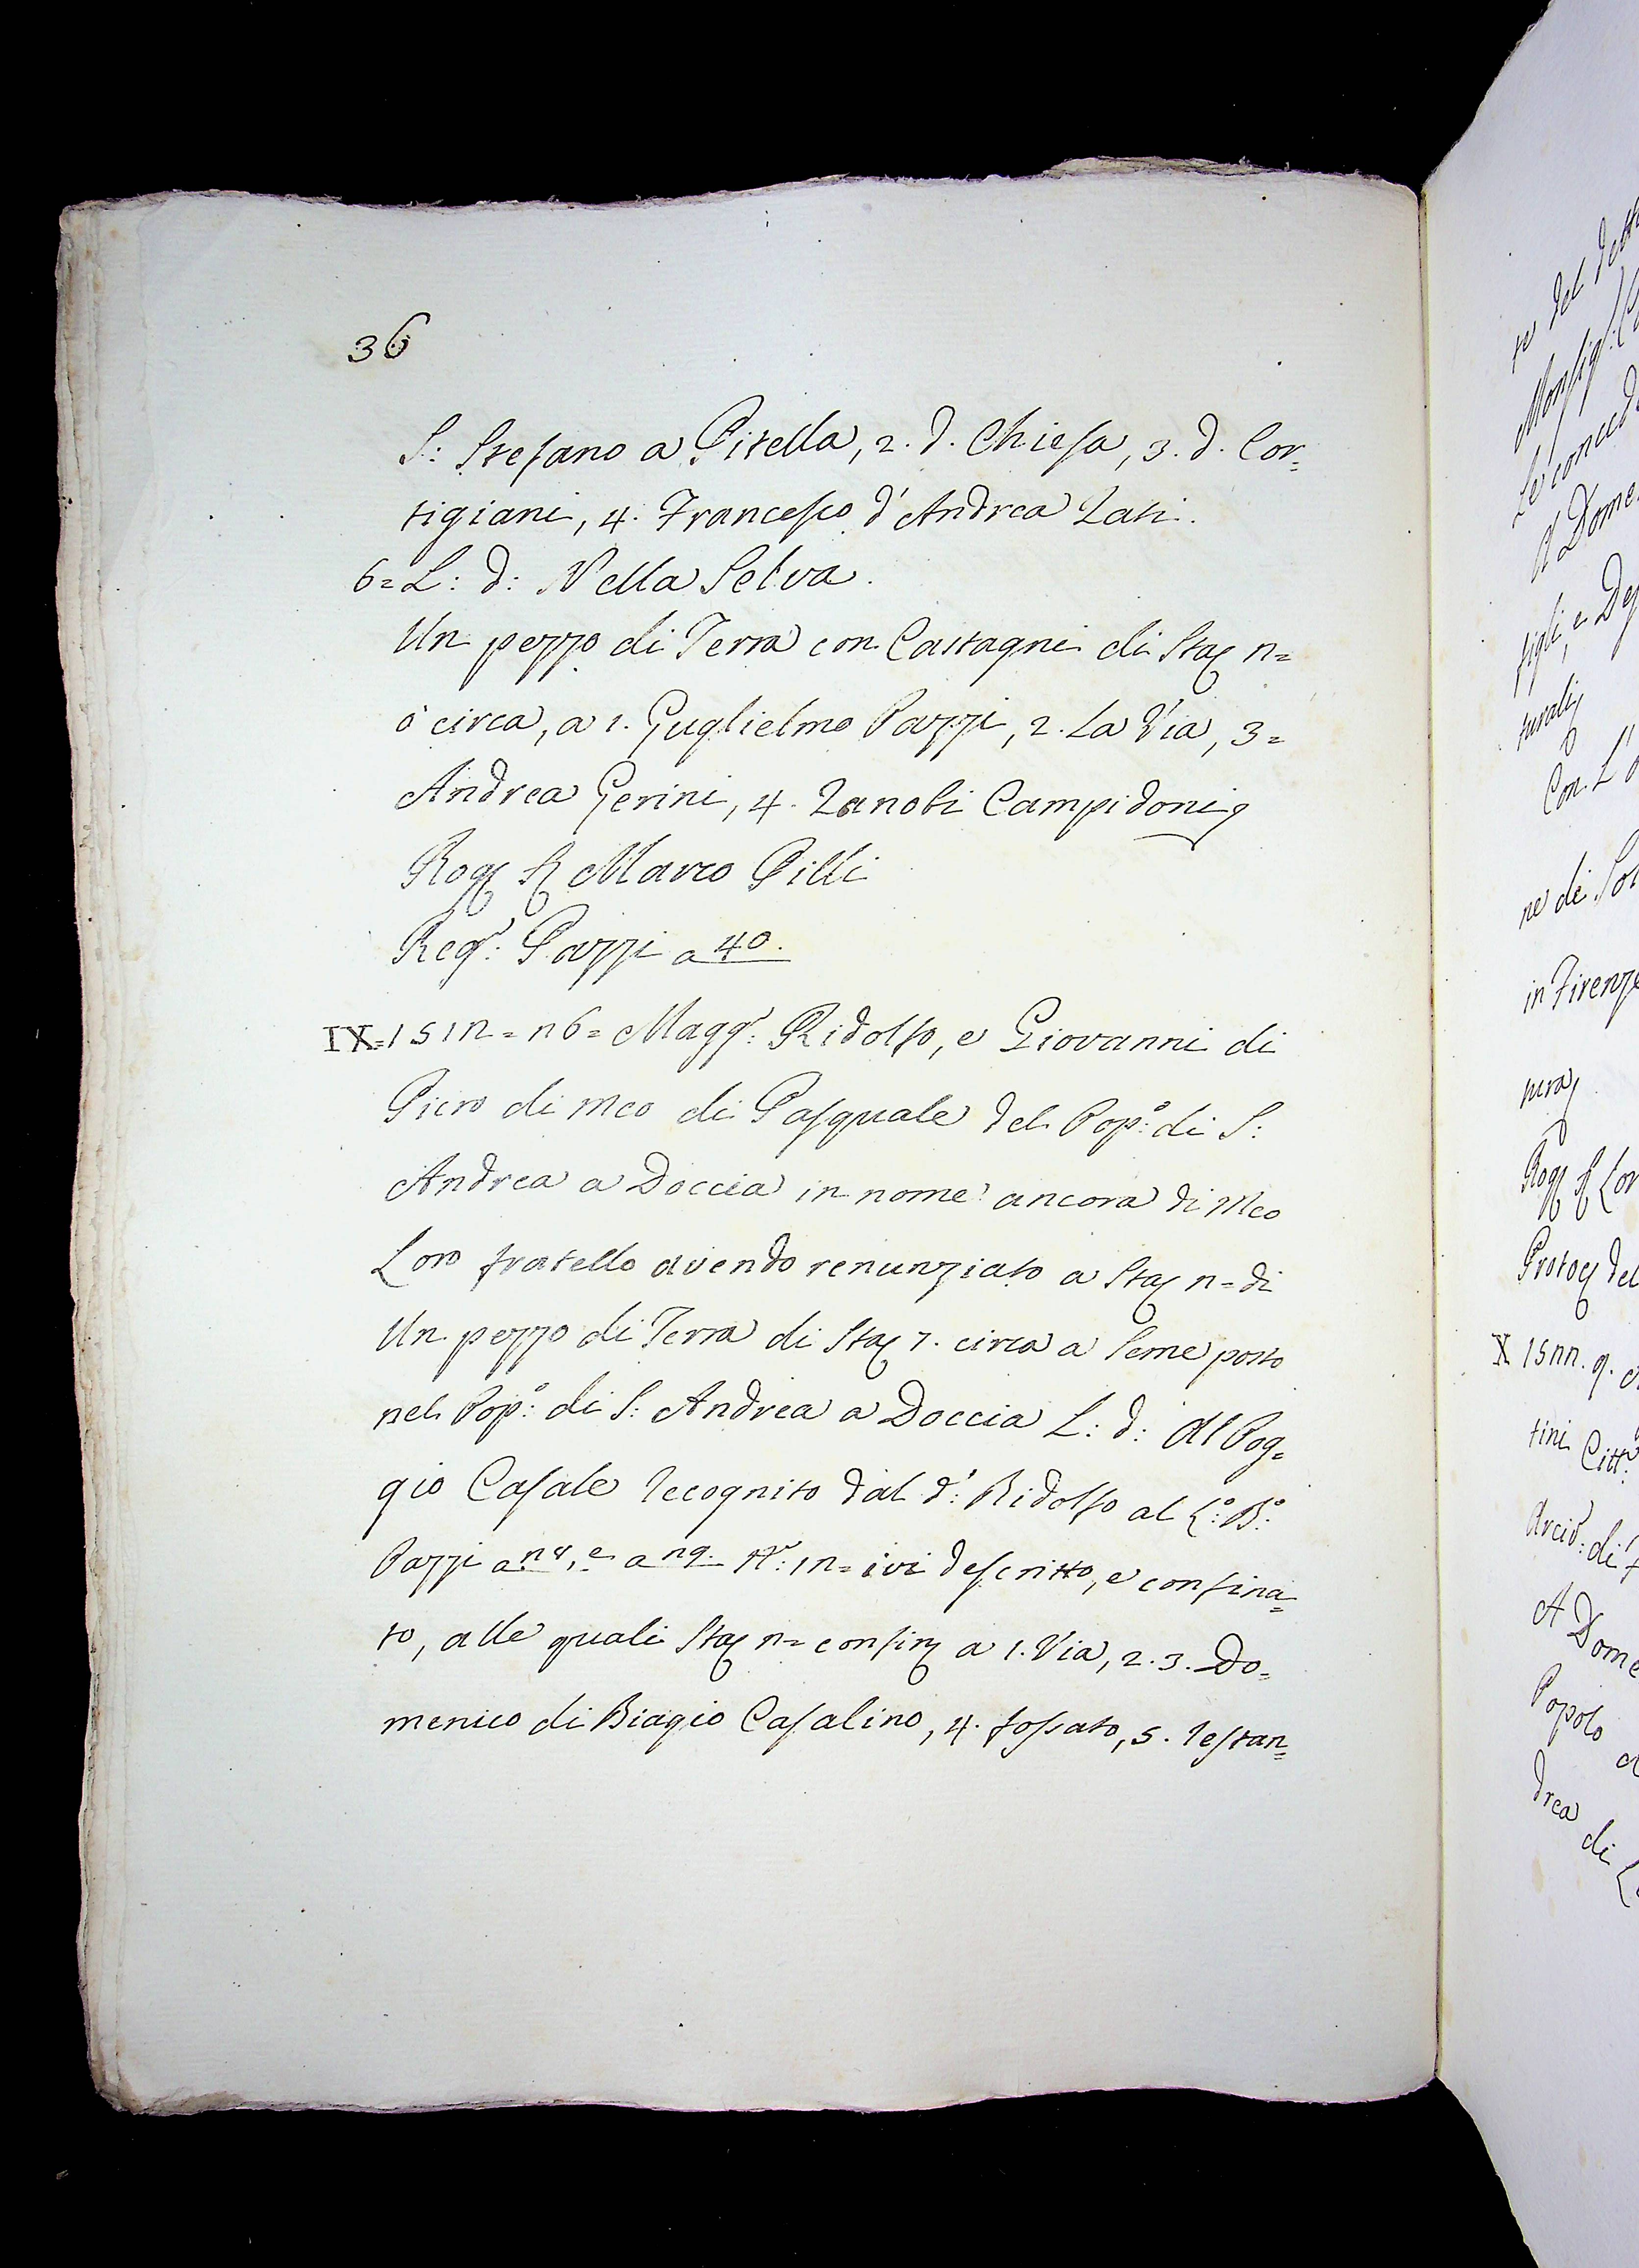 36
S: Stefano a Pitella, 2. d. Chiesa, 3. d. Cor=
tigiani, 4. Francesco d'Andrea Lati.
6= L: d: Nella Selva.
Un pezzo di Terra con Castagni di Sta n=
ò circa, a 1. Guglielmo Pazzi, 2. La Via, 3=
Andrea Gerini, 4. Zanobi Campidoni
Rog Marco Pilli
Regr: Pazzi a 40.
IX=1512=26= Maggr: Ridolfo, e Giovanni di
Piero di Meo di Pasquale del Popo: di S:
Andrea a Doccia in nome ancora di Meo
Loro fratello avendo renunziato a Sta 2= di
Un pezzo di Terra di Sta 7. circa a Seme posto
nel Popo: di S: Andrea a Doccia L: d: Al Pog=
gio Casale recognito dal d': Ridolfo al Lo: Bo:
Pazzi a 28, e a 29. Nr: 12= ivi descritto, e confina=
to, alle quali Sta 2= confin a 1. Via, 2. 3. Do=
menico di Biagio Casalino, 4. fossato, 5. restan=
te del
Monsig:
Le conced
A Dome
figli, e De
turali
Con L'
ne di
in Firenze
Rog Lor
Protoc del
X 1522. 9.
tini Citt:
Arciv: di
A Dome
Popolo
drea di